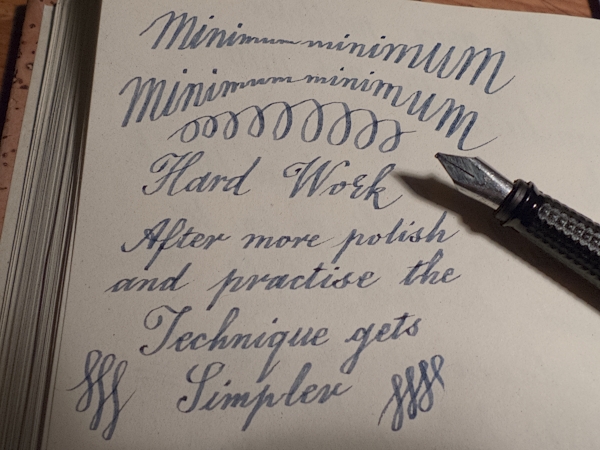 Minimum minimum
Minimum minimum
Hard Work
After more polish
and practise the
Technique gets
Simpler